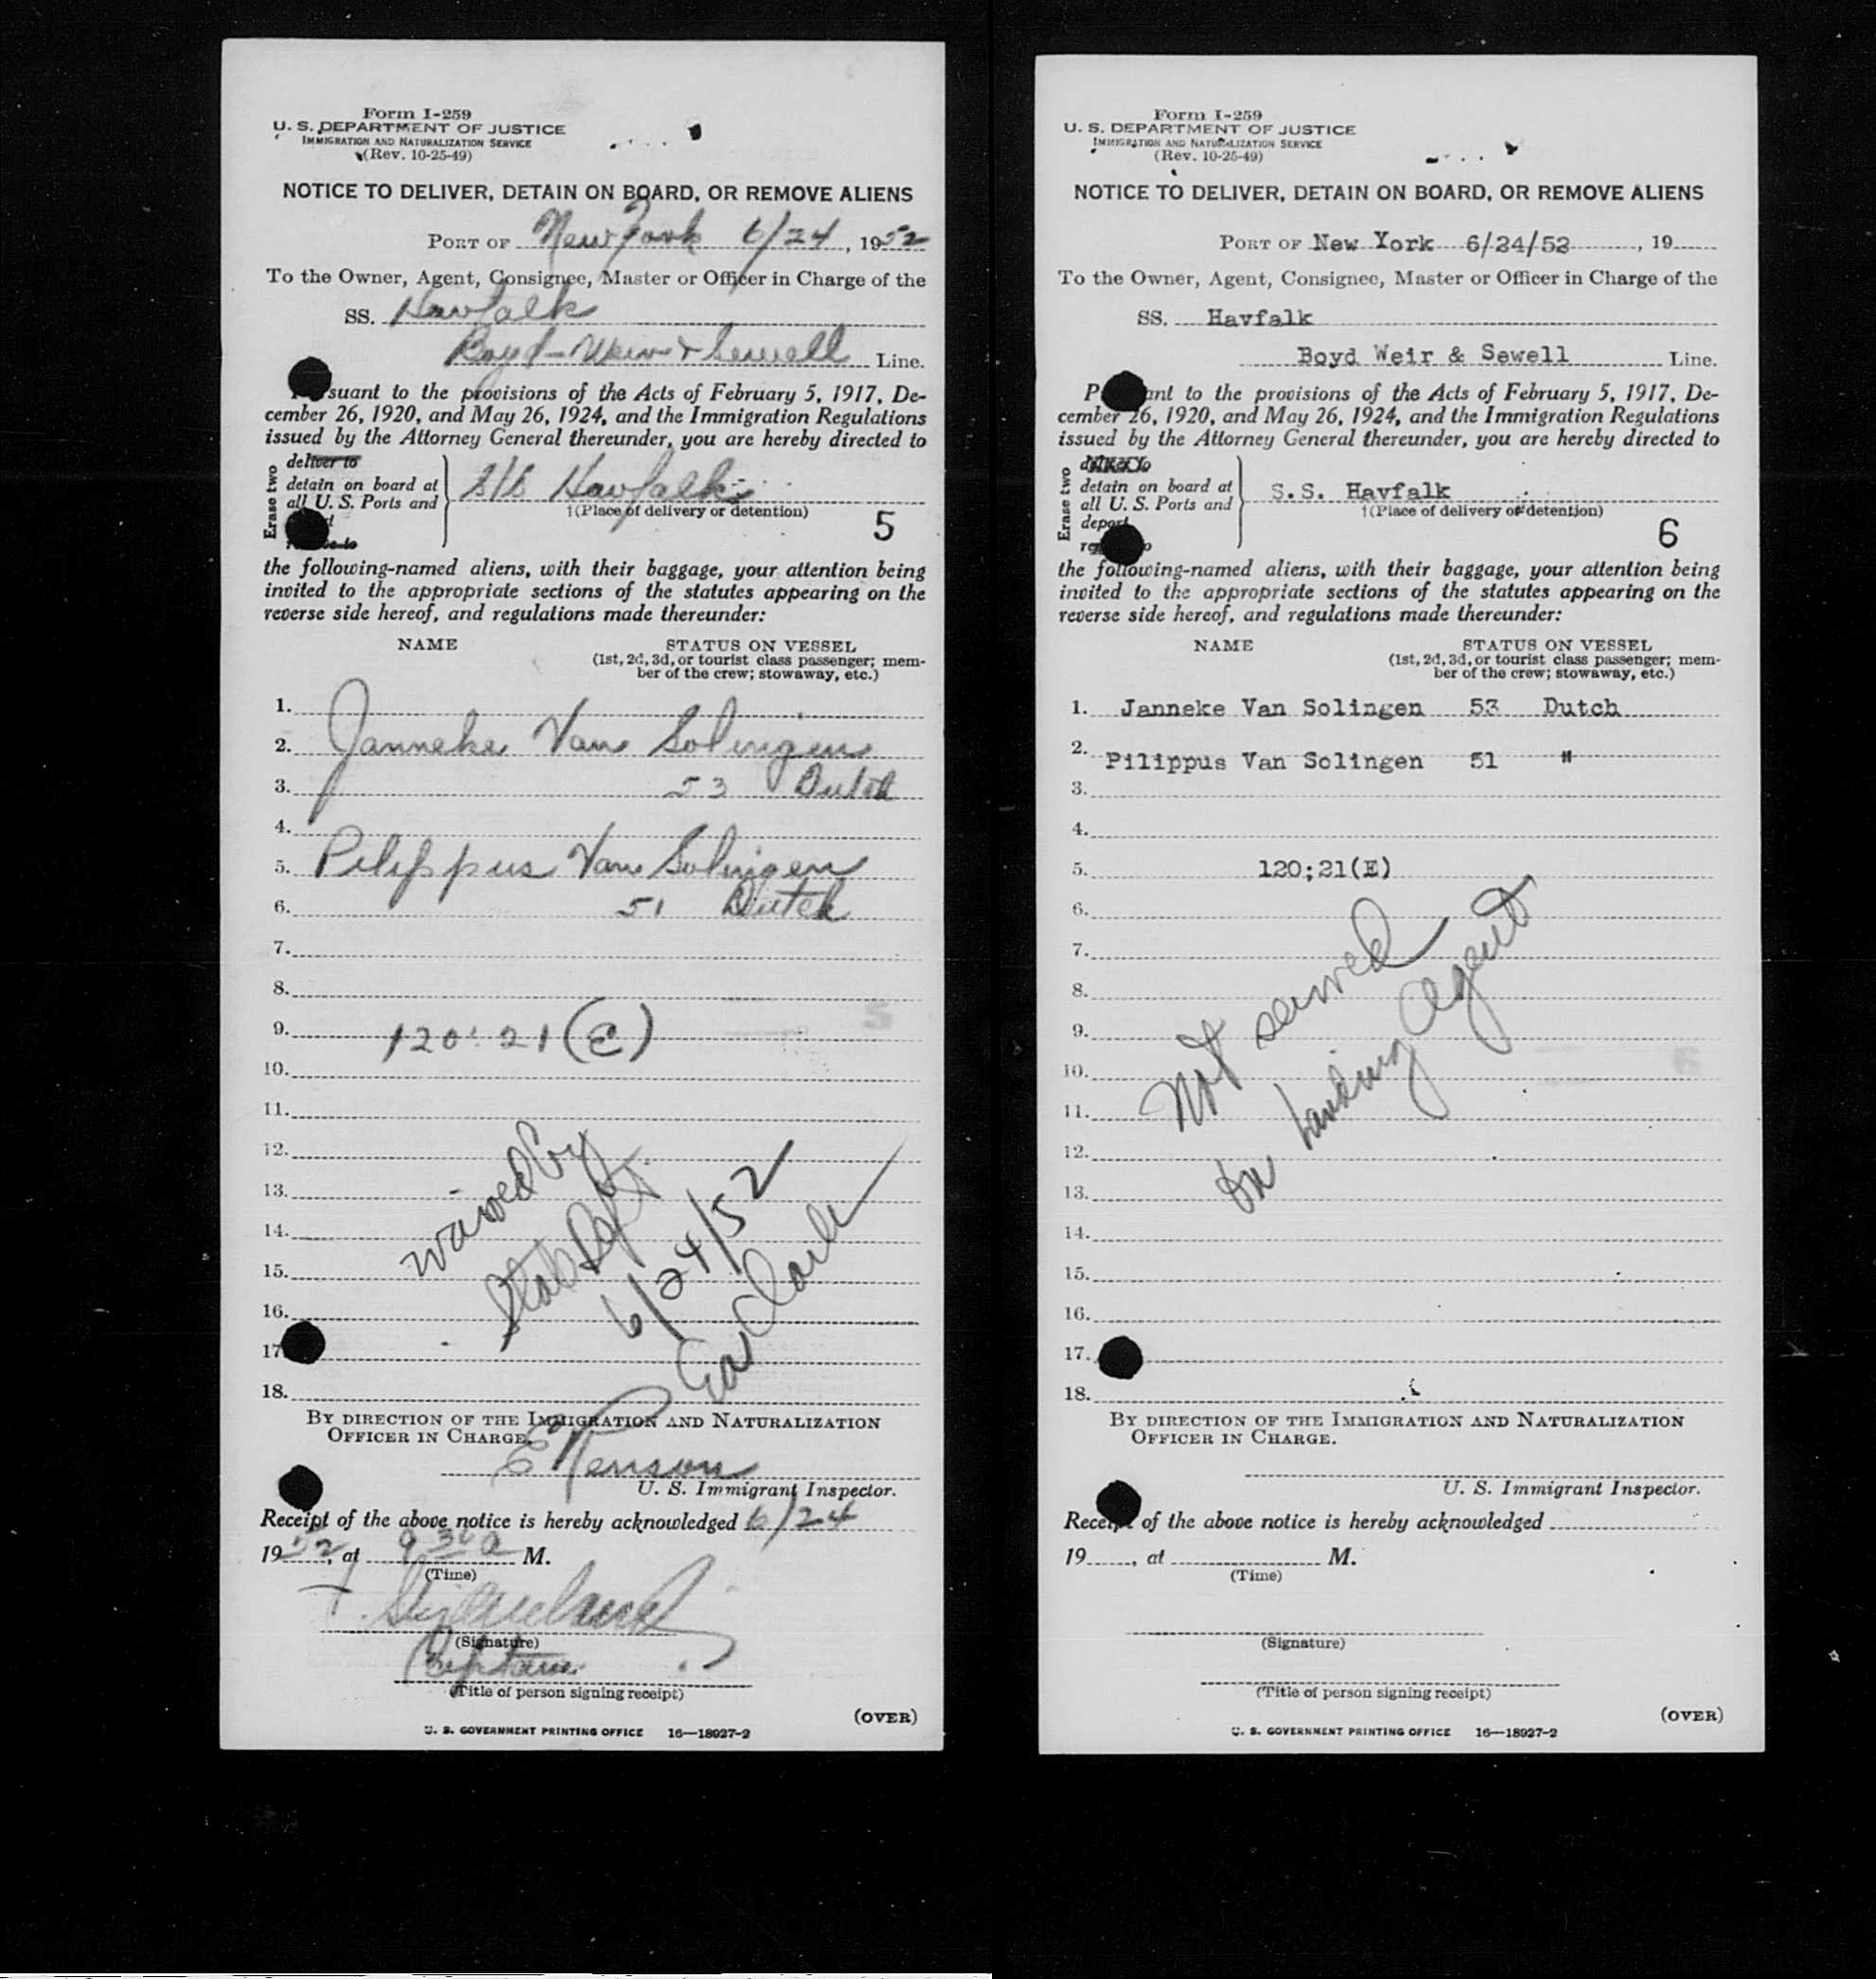 Form I-259
U. S. DEPARTMENT OF JUSTICE
IMMIGRATION AND NATURALIZATION SERVICE
(Rev. 10-25-49)
NOTICE TO DELIVER, DETAIN ON BOARD, OR REMOVE ALIENS
PORT OF New York 6/24, 1952
To the Owner, Agent, Consignee, Master or Officer in Charge of the
SS. Havfalk
Boyd-Weir & Sewell Line.
suant to the provisions of the Acts of February 5, 1917, De-
cember 26, 1920, and May 26, 1924, and the Immigration Regulations
issued by the Attorney General thereunder, you are hereby directed to
Erase two
deliver to
detain on board at
all U. S. Ports and
S/S Havfalk
†(Place of delivery or detention)
5
the following-named aliens, with their baggage, your attention being
invited to the appropriate sections of the statutes appearing on the
reverse side hereof, and regulations made thereunder:
NAME STATUS ON VESSEL
(1st, 2d, 3d, or tourist class passenger; mem-
ber of the crew; stowaway, etc.)
1.
2. Janneke Van Solingen
3. 53 Dutch
4.
5. Pilippus Van Solingen
6. 51 Dutch
7.
8.
9. 120:21(E)
10.
11.
12.
13.
14.
15.
16.
17
18.
waived by
State Dept
6/24/52
BY DIRECTION OF THE IMMIGRATION AND NATURALIZATION
OFFICER IN CHARGE.
U. S. Immigrant Inspector.
Receipt of the above notice is hereby acknowledged 6/24
1952, at 9 30 a M.
(Time)
(Signature)
Captain
(Title of person signing receipt)
(OVER)
U. S. GOVERNMENT PRINTING OFFICE 16—18927-2
Form I-259
U. S. DEPARTMENT OF JUSTICE
IMMIGRATION AND NATURALIZATION SERVICE
(Rev. 10-25-49)
NOTICE TO DELIVER, DETAIN ON BOARD, OR REMOVE ALIENS
PORT OF New York 6/24/52, 19
To the Owner, Agent, Consignee, Master or Officer in Charge of the
SS. Havfalk
Boyd Weir & Sewell Line.
P ant to the provisions of the Acts of February 5, 1917, De-
cember 26, 1920, and May 26, 1924, and the Immigration Regulations
issued by the Attorney General thereunder, you are hereby directed to
Erase two
detain on board at
all U. S. Ports and
deport
S.S. Havfalk
†(Place of delivery or detention)
6
the following-named aliens, with their baggage, your attention being
invited to the appropriate sections of the statutes appearing on the
reverse side hereof, and regulations made thereunder:
NAME STATUS ON VESSEL
(1st, 2d, 3d, or tourist class passenger; mem-
ber of the crew; stowaway, etc.)
1. Janneke Van Solingen 53 Dutch
2. Pilippus Van Solingen 51 "
3.
4.
5. 120;21(E)
6.
7.
8.
9.
10.
11.
12.
13.
14.
15.
16.
17.
18.
Not served
on landing agent
BY DIRECTION OF THE IMMIGRATION AND NATURALIZATION
OFFICER IN CHARGE.
U. S. Immigrant Inspector.
Receipt of the above notice is hereby acknowledged
19, at M.
(Time)
(Signature)
(Title of person signing receipt)
(OVER)
U. S. GOVERNMENT PRINTING OFFICE 16—18927-2